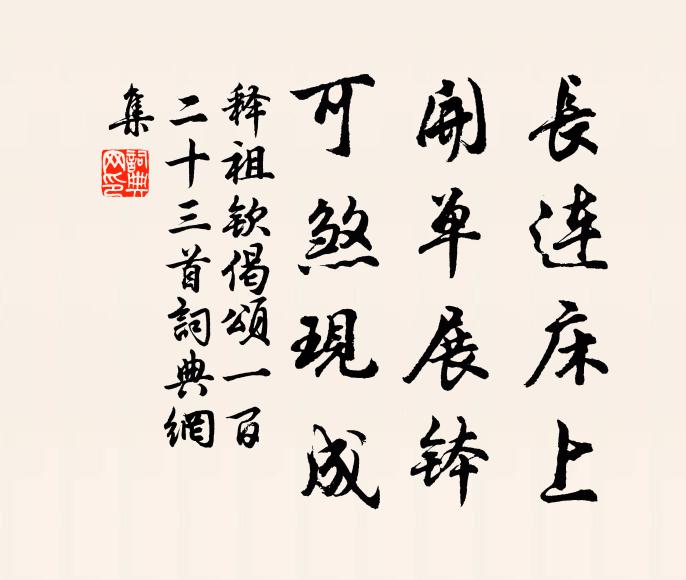 長連床上
開单展钵
可煞現成
释祖钦偈頌一百
二十三首詞典網
集
詞典
网印